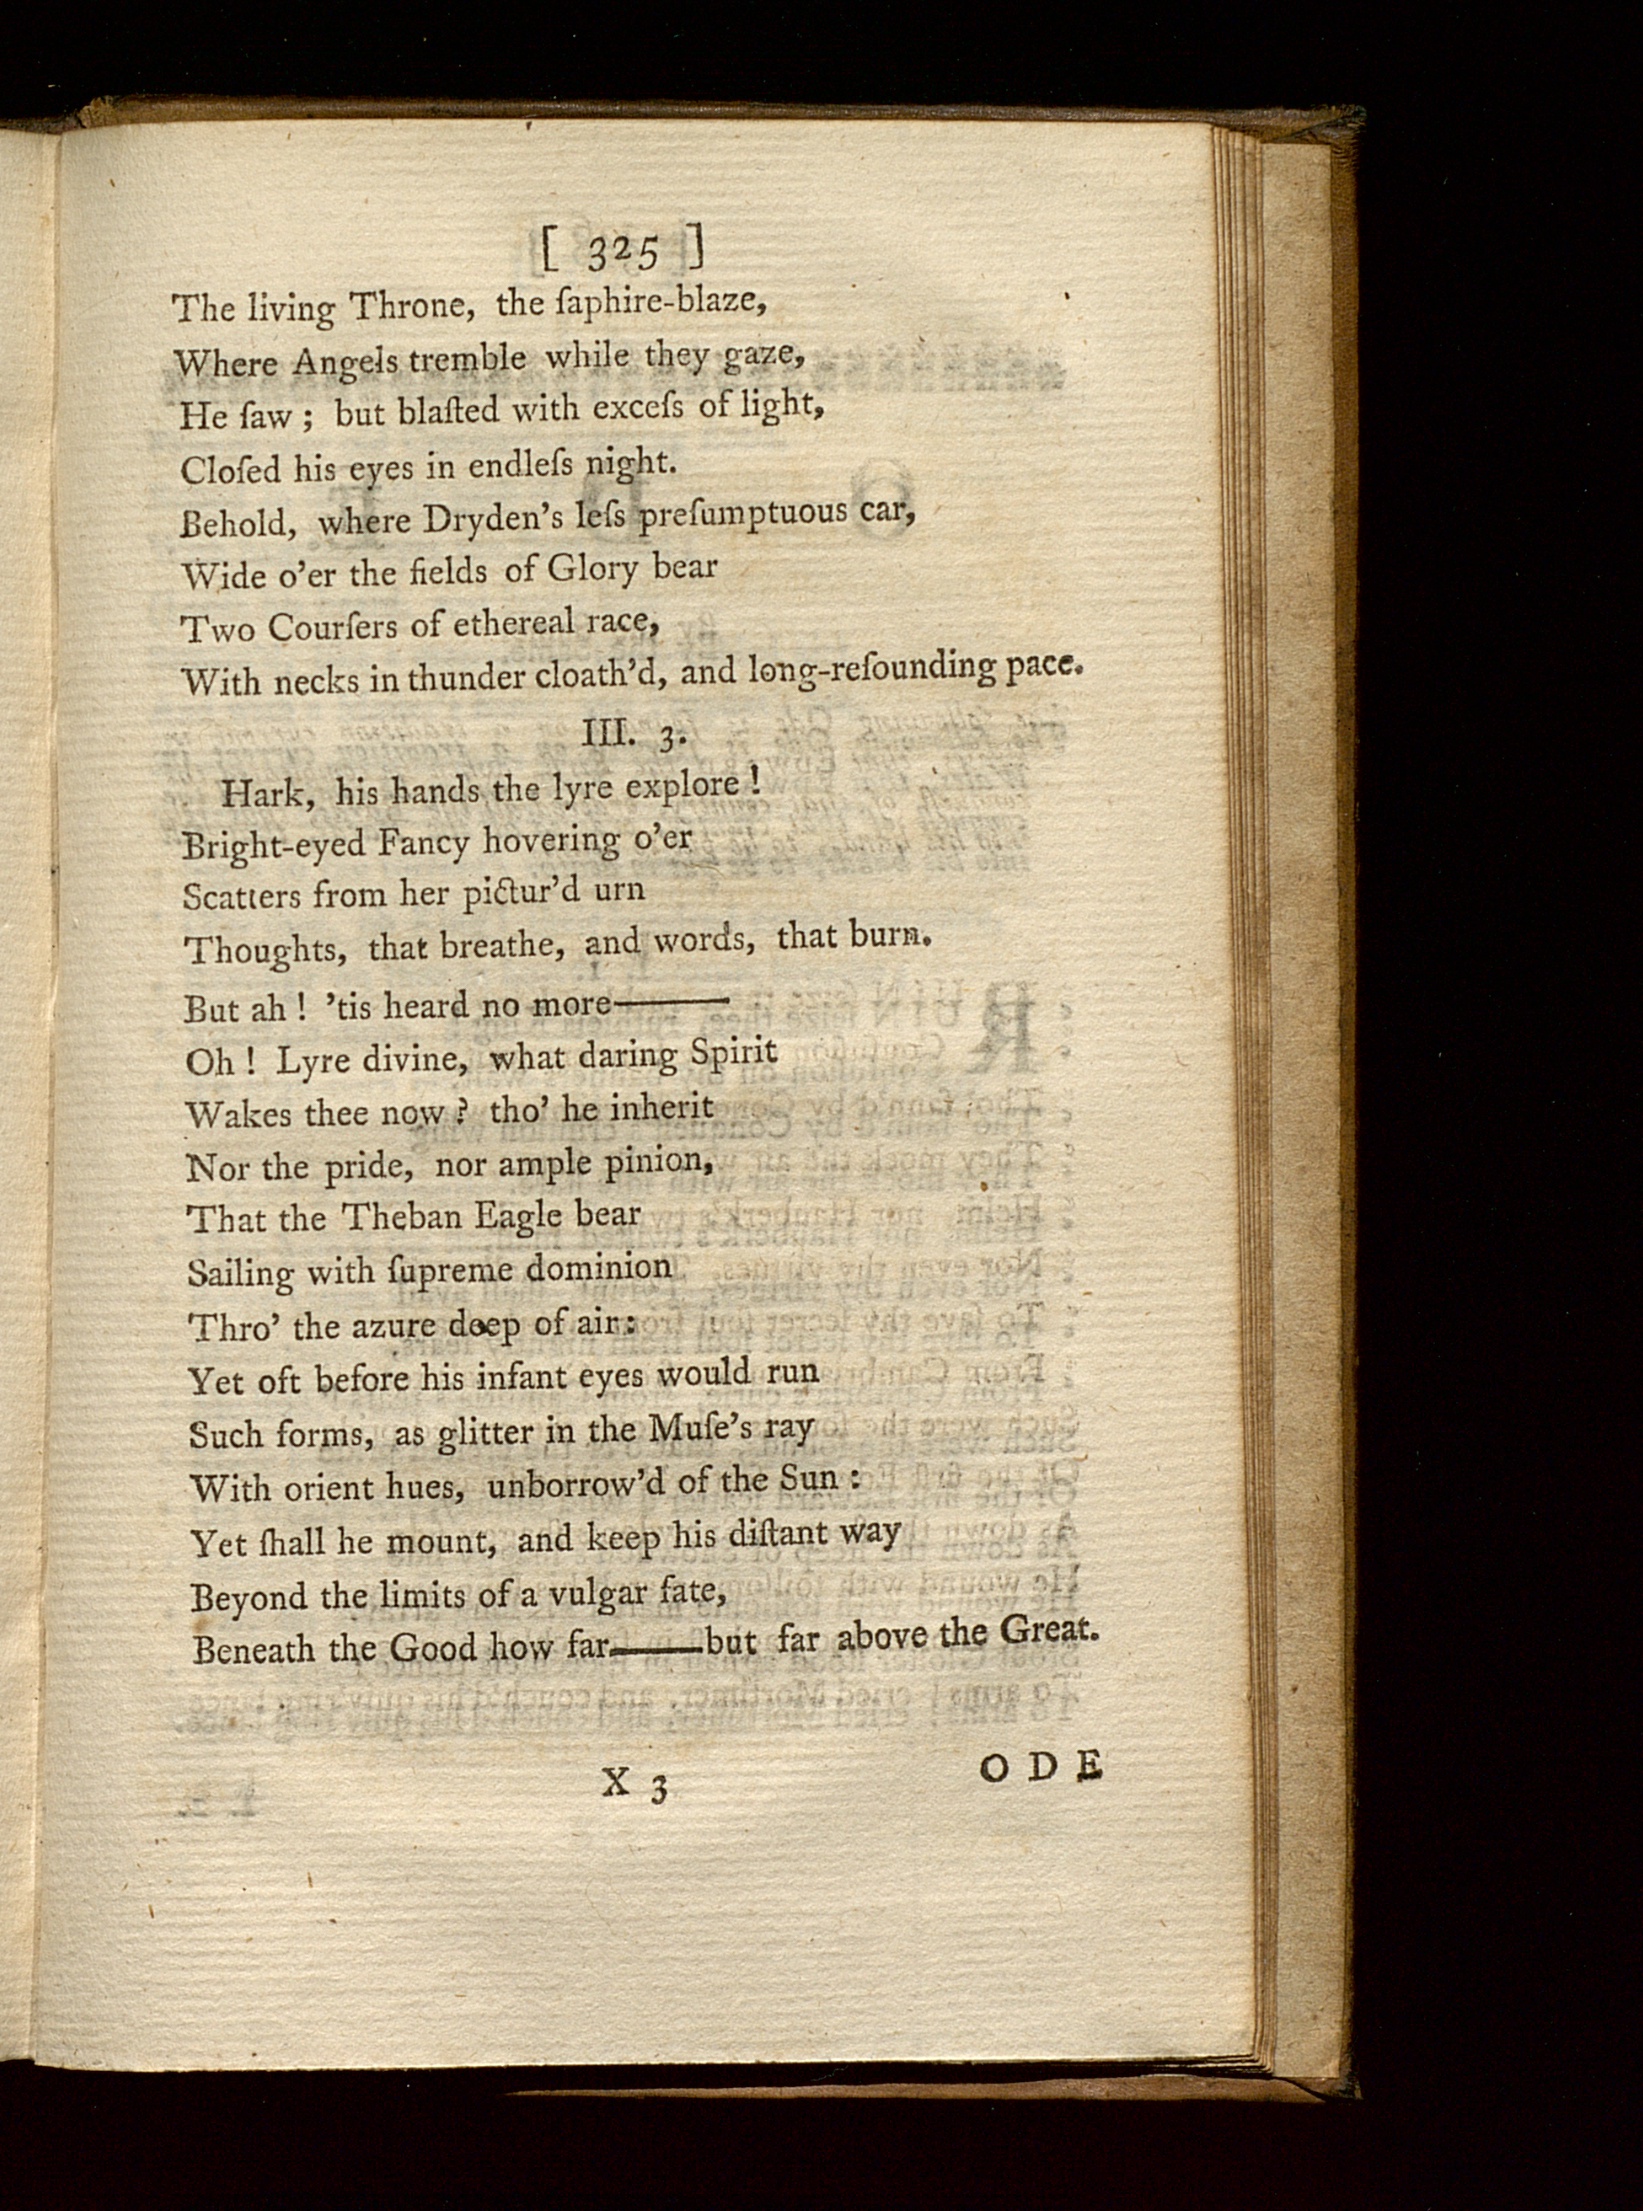 [ 325 ]
The living Throne, the ſaphire-blaze,
Where Angels tremble while they gaze,
He ſaw ; but blaſted with exceſs of light,
Cloſed his eyes in endleſs night.
Behold, where Dryden's leſs preſumptuous car,
Wide o'er the fields of Glory bear
Two Courſers of ethereal race,
With necks in thunder cloath'd, and long-reſounding pace.
III. 3.
Hark, his hands the lyre explore !
Bright-eyed Fancy hovering o'er
Scatters from her pictur'd urn
Thoughts, that breathe, and words, that burn.
But ah ! 'tis heard no more——
Oh ! Lyre divine, what daring Spirit
Wakes thee now ? tho' he inherit
Nor the pride, nor ample pinion,
That the Theban Eagle bear
Sailing with ſupreme dominion
Thro' the azure deep of air :
Yet oft before his infant eyes would run
Such forms, as glitter in the Muſe's ray
With orient hues, unborrow'd of the Sun :
Yet ſhall he mount, and keep his diſtant way
Beyond the limits of a vulgar fate,
Beneath the Good how far——but far above the Great.
X 3
ODE